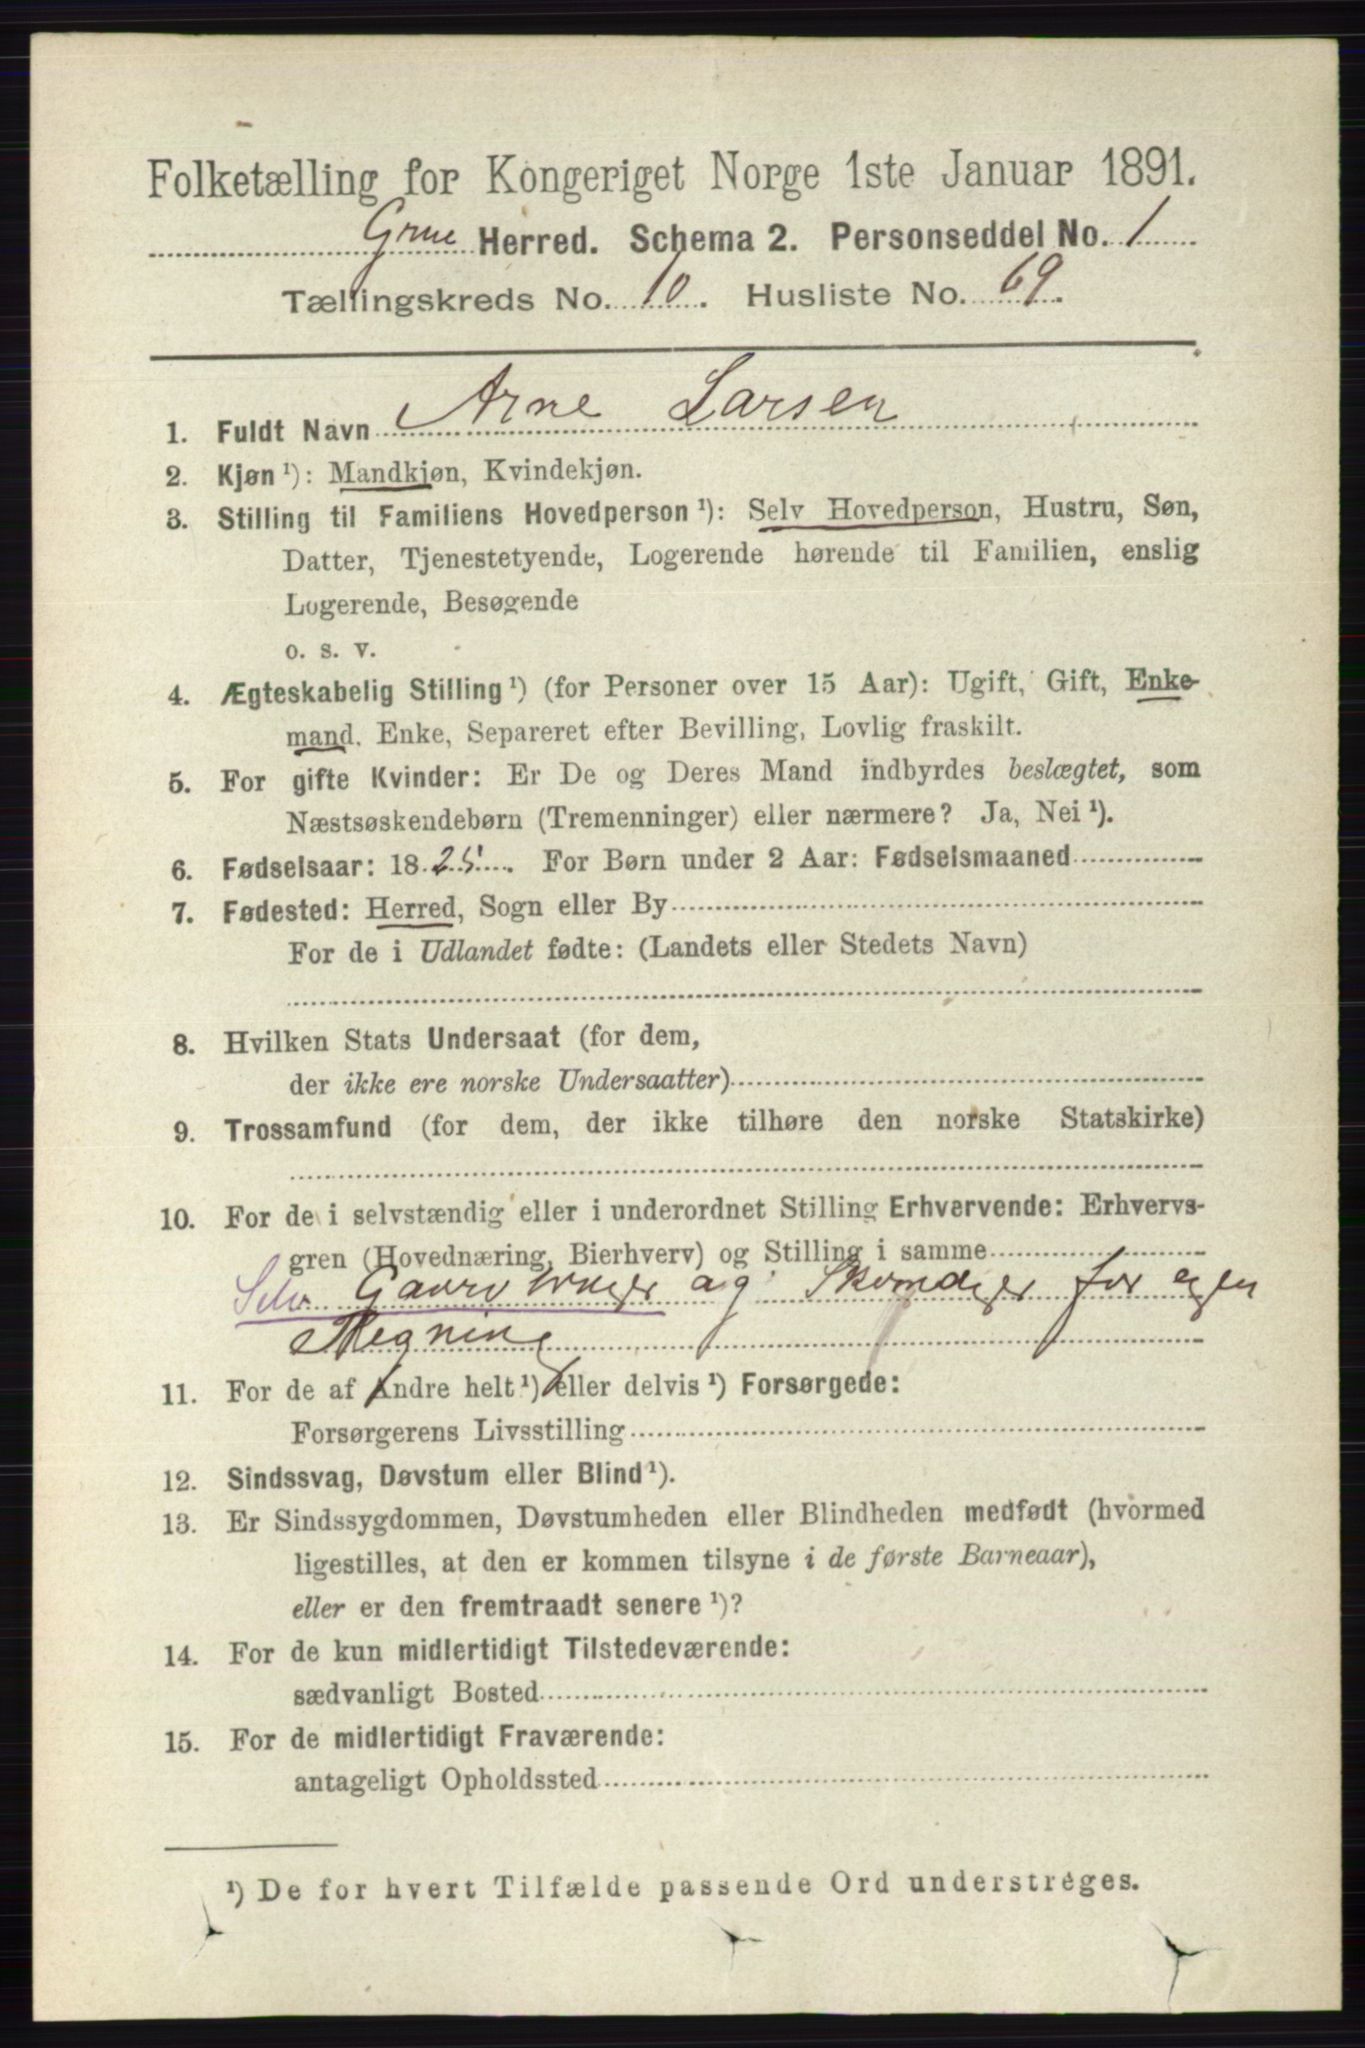 Folketælling for Kongeriget Norge 1ste Januar 1891.
Grue Herred. Schema 2. Personseddel No. 1
Tællingskreds No. 10. Husliste No. 69.
1. Fuldt Navn Arne Larsen
2. Kjøn ¹): Mandkjøn, Kvindekjøn.
3. Stilling til Familiens Hovedperson ¹): Selv Hovedperson, Hustru, Søn,
Datter, Tjenestetyende, Logerende hørende til Familien, enslig
Logerende, Besøgende
o. s. v.
4. Ægteskabelig Stilling ¹) (for Personer over 15 Aar): Ugift, Gift, Enke-
mand. Enke, Separeret efter Bevilling, Lovlig fraskilt.
5. For gifte Kvinder: Er De og Deres Mand indbyrdes beslægtet, som
Næstsøskendebørn (Tremenninger) eller nærmere? Ja, Nei ¹).
6. Fødselsaar: 1825. For Børn under 2 Aar: Fødselsmaaned
7. Fødested: Herred, Sogn eller By
For de i Udlandet fødte: (Landets eller Stedets Navn)
8. Hvilken Stats Undersaat (for dem,
der ikke ere norske Undersaatter)
9. Trossamfund (for dem, der ikke tilhøre den norske Statskirke)
10. For de i selvstændig eller i underordnet Stilling Erhvervende: Erhvervs-
gren (Hovednæring, Bierhverv) og Stilling i samme
Selv Gaardbruger og for egen
Regning
11. For de af Andre helt ¹) eller delvis ¹) Forsørgede:
Forsørgerens Livsstilling
12. Sindssvag, Døvstum eller Blind ¹).
13. Er Sindssygdommen, Døvstumheden eller Blindheden medfødt (hvormed
ligestilles, at den er kommen tilsyne i de første Barneaar),
eller er den fremtraadt senere ¹)?
14. For de kun midlertidigt Tilstedeværende:
sædvanligt Bosted
15. For de midlertidigt Fraværende:
antageligt Opholdssted
¹) De for hvert Tilfælde passende Ord understreges.